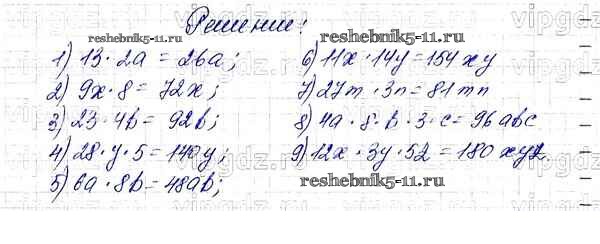 Решение:
reshebnik5-11.ru
1) 13 · 2a = 26a;
2) 9x · 8 = 72x;
3) 23 · 4b = 92b;
4) 28 · y · 5 = 140y;
5) 6a · 8b = 48ab;
6) 11x · 14y = 154xy
7) 27m · 3n = 81mn
8) 4a · 8 · b · 3 · c = 96abc
9) 12x · 3y · 5z = 180xyz
reshebnik5-11.ru